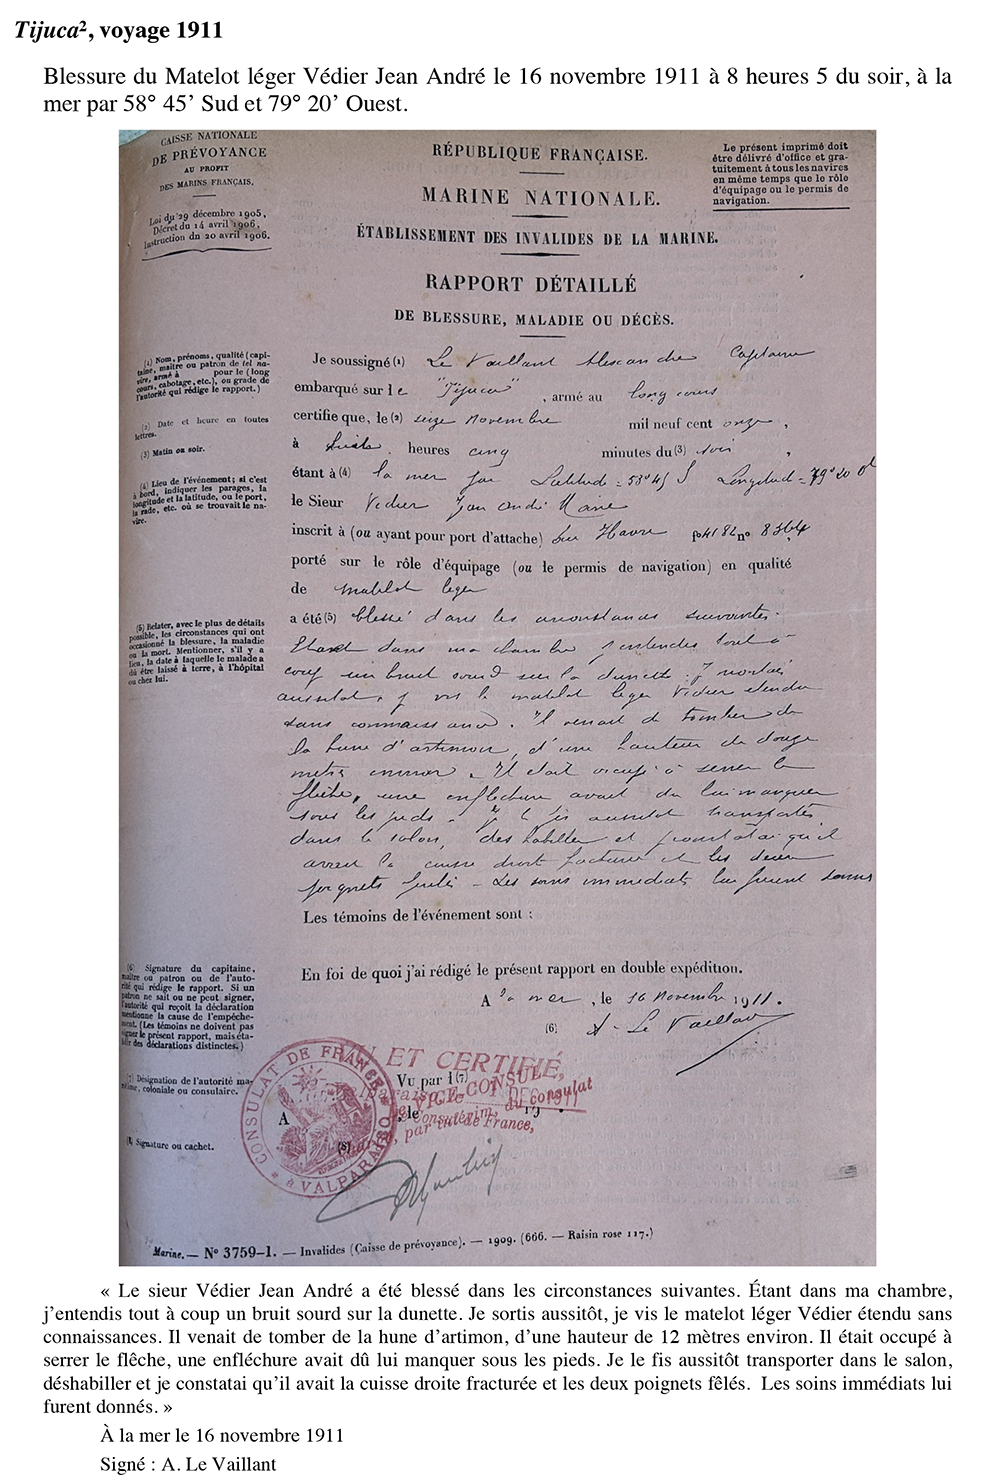 Tijuca², voyage 1911
Blessure du Matelot léger Védier Jean André le 16 novembre 1911 à 8 heures 5 du soir, à la
mer par 58° 45’ Sud et 79° 20’ Ouest.
CAISSE NATIONALE
DE PRÉVOYANCE
AU PROFIT
DES MARINS FRANÇAIS.
Loi du 29 décembre 1905,
Décret du 14 avril 1906,
Instruction du 20 avril 1906.
RÉPUBLIQUE FRANÇAISE.
MARINE NATIONALE.
ÉTABLISSEMENT DES INVALIDES DE LA MARINE.
RAPPORT DÉTAILLÉ
DE BLESSURE, MALADIE OU DÉCÈS.
Le présent imprimé doit
être délivré d'office et gra-
tuitement à tous les navires
en même temps que le rôle
d'équipage ou le permis de
navigation.
(1) Nom, prénoms, qualité (capi-
taine, maître ou patron de tel na-
vire, armé à pour le (long
cours, cabotage, etc.), ou grade de
l'autorité qui rédige le rapport.)
(2) Date et heure en toutes
lettres.
(3) Matin ou soir.
(4) Lieu de l'événement; si c'est
à bord, indiquer les parages, la
longitude et la latitude, ou le port,
la rade, etc. où se trouvait le na-
vire.
(5) Relater, avec le plus de détails
possible, les circonstances qui ont
occasionné la blessure, la maladie
ou la mort. Mentionner, s'il y a
lieu, la date à laquelle le malade a
dû être laissé à terre, à l'hôpital
ou chez lui.
Je soussigné (1) Le Vaillant Capitaine
embarqué sur le "Tijuca", armé au long cours
certifie que, le (2) seize Novembre mil neuf cent onze,
à huit heures cinq minutes du (3) soir,
étant à (4) la mer par Latitude = 58°45 S Longitude = 79°20 O
le Sieur Védier Jean André
inscrit à (ou ayant pour port d'attache) au Havre n°
porté sur le rôle d'équipage (ou le permis de navigation) en qualité
de matelot léger
a été (5) blessé dans les circonstances suivantes.
Etant dans ma chambre j'entendis tout à
coup un bruit sourd sur la dunette. Je montai
aussitôt, je vis le matelot léger Védier étendu
sans connaissance. Il venait de tomber de
la hune d'artimon, d'une hauteur de douze
mètres environ. Il était occupé à serrer le
flèche, une enfléchure avait du lui manquer
sous les pieds. Je le fis aussitôt transporter
dans le salon, déshabiller et constatai qu'il
avait la cuisse droite fracturée et les deux
poignets fêlés - Les soins immédiats lui furent donnés
Les témoins de l'événement sont :
(6) Signature du capitaine,
maître ou patron ou de l'auto-
rité qui rédige le rapport. Si un
patron ne sait ou ne peut signer,
l'autorité qui reçoit la déclaration
mentionne la cause de l'empêche-
ment. (Les témoins ne doivent pas
signer le présent rapport, mais éta-
blir des déclarations distinctes.)
(7) Désignation de l'autorité ma-
ritime, coloniale ou consulaire.
Signature ou cachet.
En foi de quoi j'ai rédigé le présent rapport en double expédition.
A la mer, le 16 Novembre 1911.
(6) A. Le Vaillant
ET CERTIFIÉ,
Vu par l (7)
VICE CONSUL
du consulat
A , le 19 .
par intérim de France,
(8)
CONSULAT DE FRANCE
à VALPARAISO
Marine. — N° 3759-1. — Invalides (Caisse de prévoyance). — 1909. (666. — Raisin rose 117.)
« Le sieur Védier Jean André a été blessé dans les circonstances suivantes. Étant dans ma chambre,
j’entendis tout à coup un bruit sourd sur la dunette. Je sortis aussitôt, je vis le matelot léger Védier étendu sans
connaissances. Il venait de tomber de la hune d’artimon, d’une hauteur de 12 mètres environ. Il était occupé à
serrer le flêche, une enfléchure avait dû lui manquer sous les pieds. Je le fis aussitôt transporter dans le salon,
déshabiller et je constatai qu’il avait la cuisse droite fracturée et les deux poignets fêlés. Les soins immédiats lui
furent donnés. »
À la mer le 16 novembre 1911
Signé : A. Le Vaillant